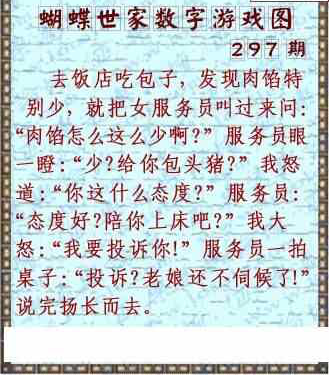 蝴蝶世家数字游戏图
297期
去饭店吃包子，发现肉馅特
别少，就把女服务员叫过来问：
“肉馅怎么这么少啊？”服务员眼
一瞪：“少？给你包头猪？”我怒
道：“你这什么态度？”服务员：
“态度好？陪你上床吧？”我大
怒：“我要投诉你！”服务员一拍
桌子：“投诉？老娘还不伺候了！”
说完扬长而去。